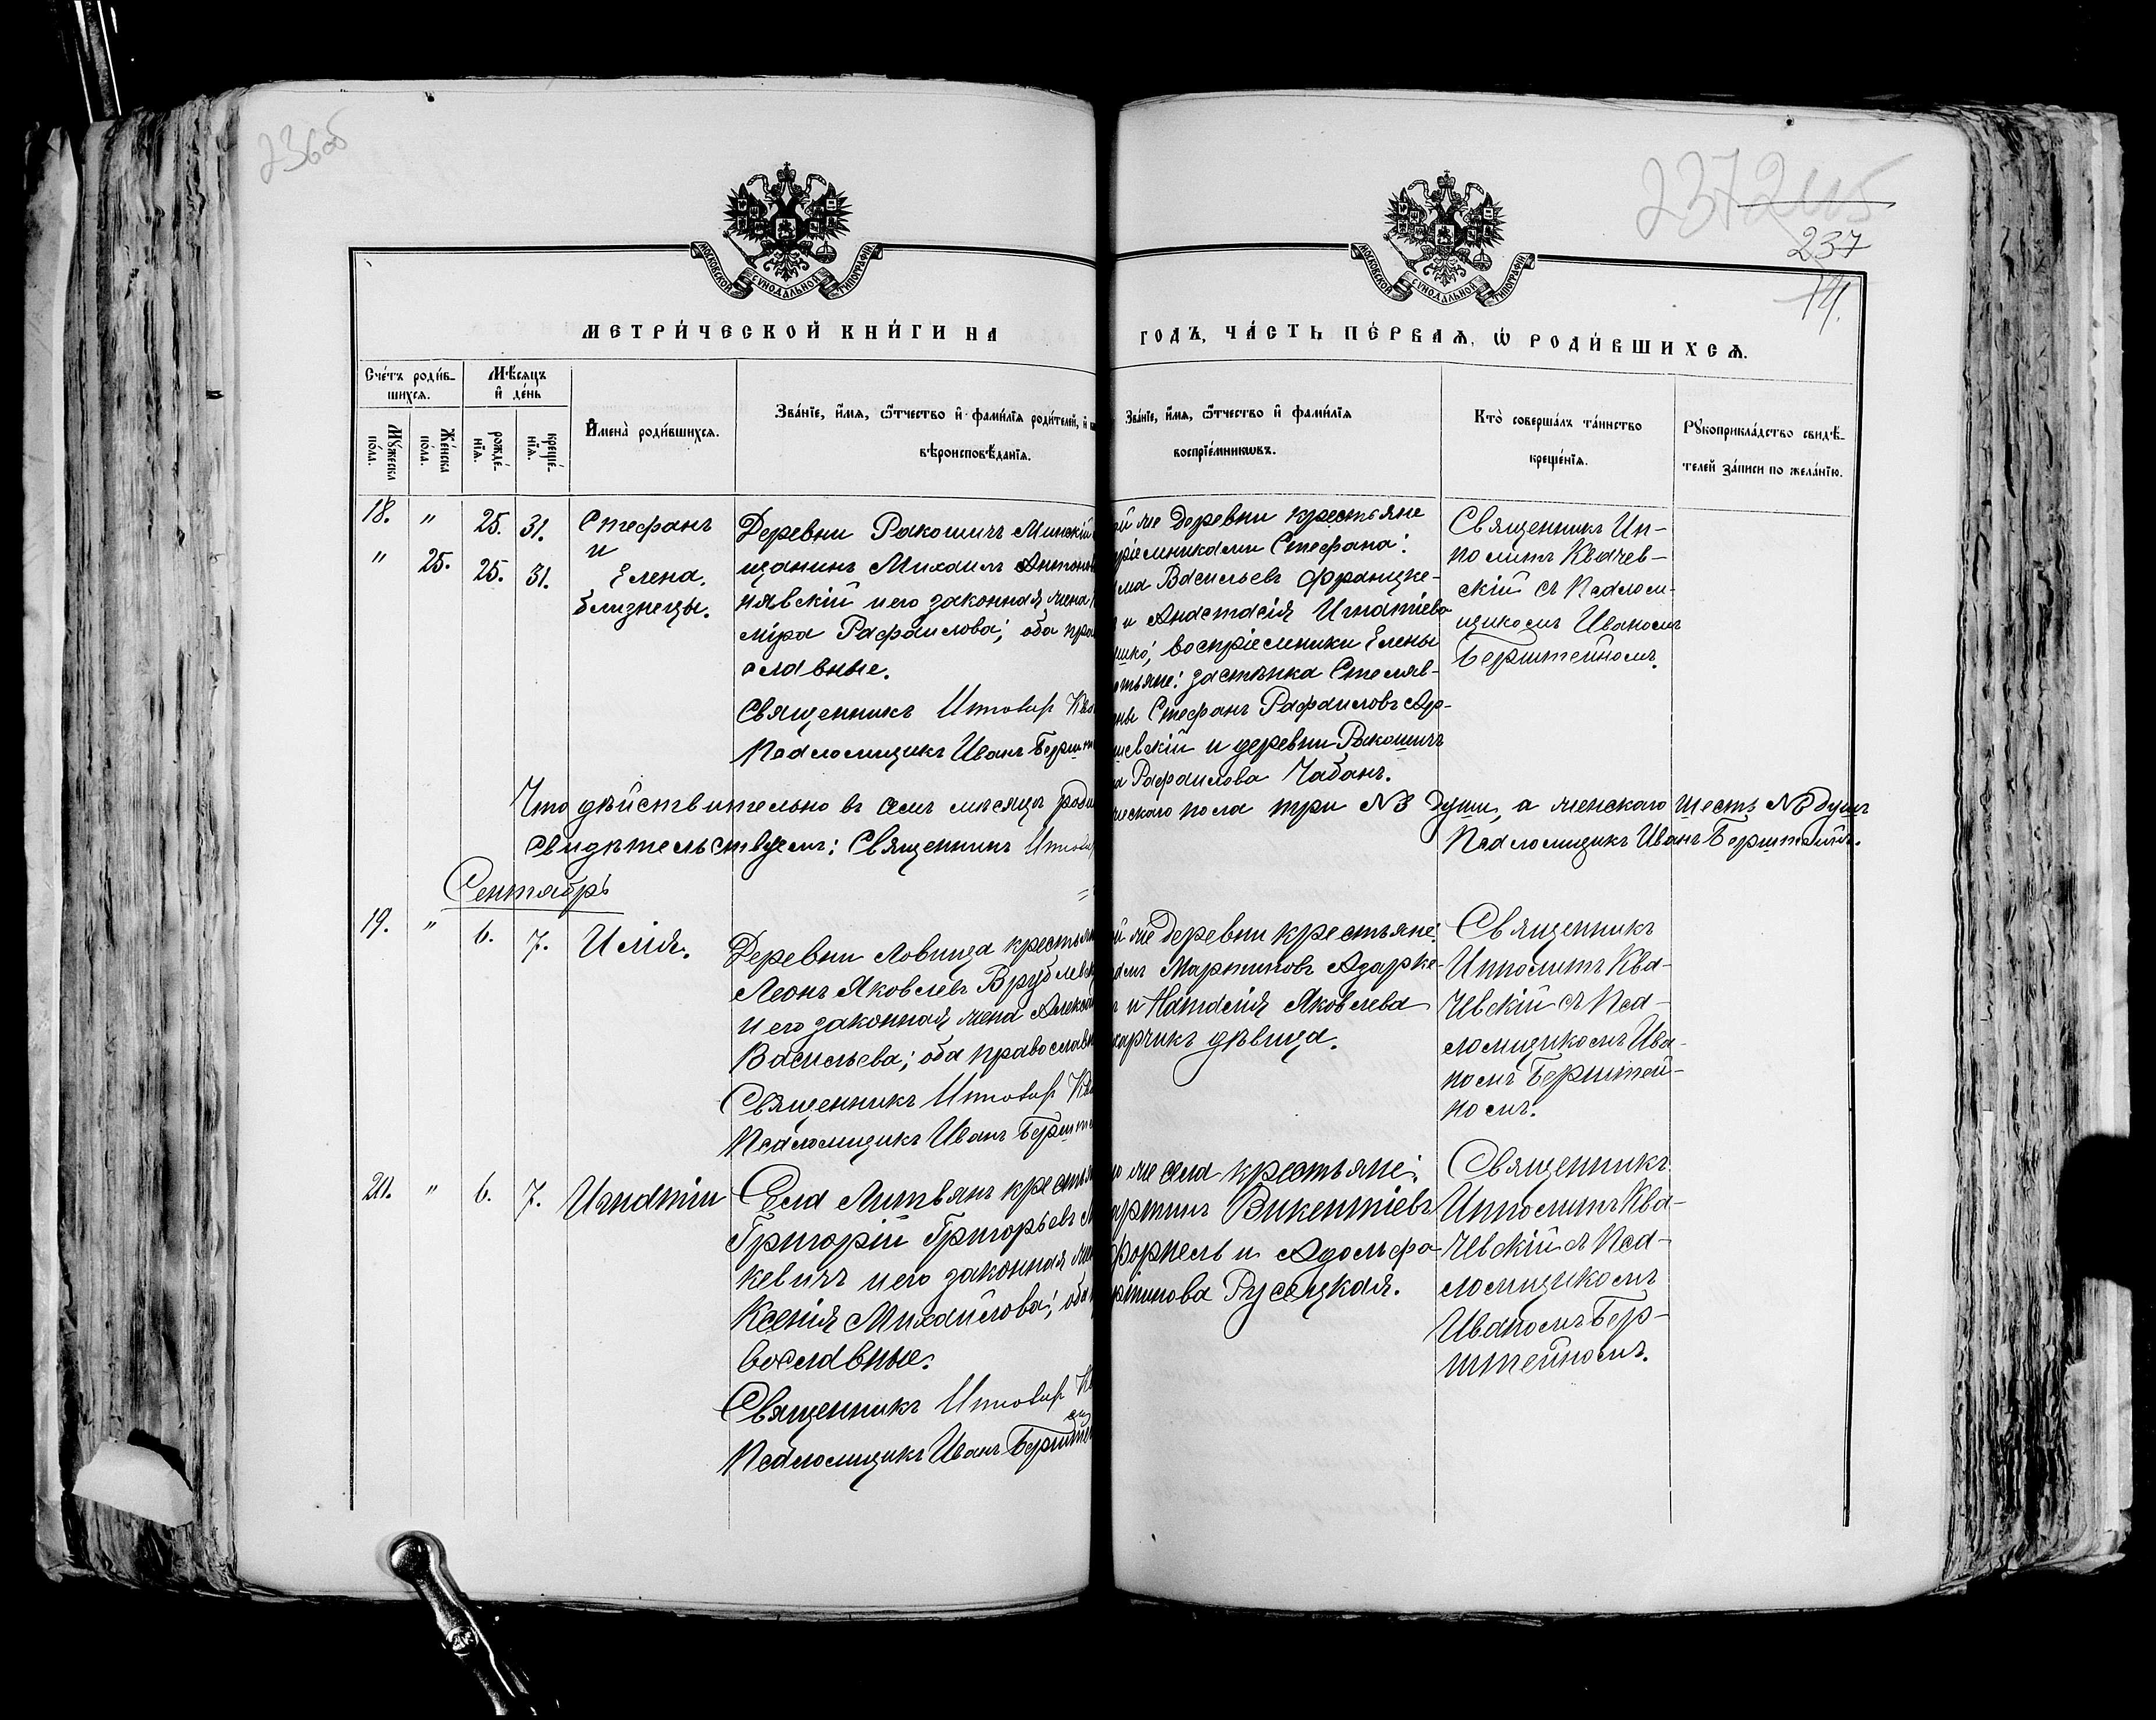 236об
237
237
14.
МОСКОВСКОЙ СѴНОДАЛЬНОЙ ТИПОГРАФІИ
МОСКОВСКОЙ СѴНОДАЛЬНОЙ ТИПОГРАФІИ
МЕТРИ́ЧЕСКОЙ КНИ́ГИ НА
ГОДЪ, ЧА́СТЬ ПЕ́РВАѦ, Ѡ РОДИ́ВШИХСѦ.
Сче́тъ роди́в-
шихсѧ.
Мѣ́сѧцъ
и де́нь
Мꙋ́жеска
по́ла.
Же́нска
по́ла.
рожде́-
нїѧ.
креще́-
нїѧ.
Имена̀ роди́вшихсѧ.
Зва́нїе, и́мѧ, ѻ́тчество и фами́лїѧ роди́телей, и
вѣроисповѣ́данїѧ.
Зва́нїе, и́мѧ, ѻ́тчество и фами́лїѧ
воспрїе́мникѡвъ.
Кто̀ соверша́лъ та́инство
креще́нїѧ.
Рꙋкоприкла́дство свидѣ́-
телей за́писи по жела́нїю.
18. " 25. 31. Стефанъ
и
" 25. 25. 31. Елена.
близнецы.
Деревни Ракошичъ Минскій
щанинъ Михаилъ Антонов
нявскій и его законная жена
міра Рафаилова; оба пра
славные.
Священникъ Ипполитъ Ква
Псаломщикъ Иванъ Берште
ой же деревни крестьяне
пріемниками Стефана:
Васильевъ Францке-
и Анастасія Игнатіева
шко; воспріемники Елены
стьяне: застѣнка Столяв-
ны Стефанъ Рафаиловъ Адр-
шевскій и деревни Ракошичъ
на Рафаилова Чабанъ.
Священникъ Ип-
политъ Квачев-
скій съ Псалом-
щикомъ Иваномъ
Берштейномъ.
Что дѣйствительно въ семъ мѣсяцѣ роди
ческаго пола три №3 души, а женскаго шесть №6 душъ
свидѣтельствуемъ: Священникъ Ипполи
Псаломщикъ Иванъ Берштейнъ.
Сентябрь
19. " 6. 7. Илія.
Деревни Ловища крестьян
Леонъ Яковлевъ Врублевск
и его законная жена Алекса
Васильева; оба православн
Священникъ Ипполитъ Ква
Псаломщикъ Иванъ Берште
й же деревни крестьяне:
Мартиновъ Адарке-
и Наталія Яковлева
карчикъ дѣвица.
Священникъ
Ипполитъ Ква-
чевскій съ Пса-
ломщикомъ Ива-
номъ Берштей-
номъ.
20. " 6. 7. Игнатій
Села Литвянъ крестья
Григорій Григорьевъ М
кевичъ и его законная же
Ксенія Михайлова; оба
вославные.
Священникъ Ипполитъ Кв
Псаломщикъ Иванъ Берште
о же села крестьяне:
артинъ Викентіевъ
форнель и Адольфа
ртинова Русецкая.
Священникъ
Ипполитъ Ква-
чевскій съ Пса-
ломщикомъ
Иваномъ Бер-
штейномъ.